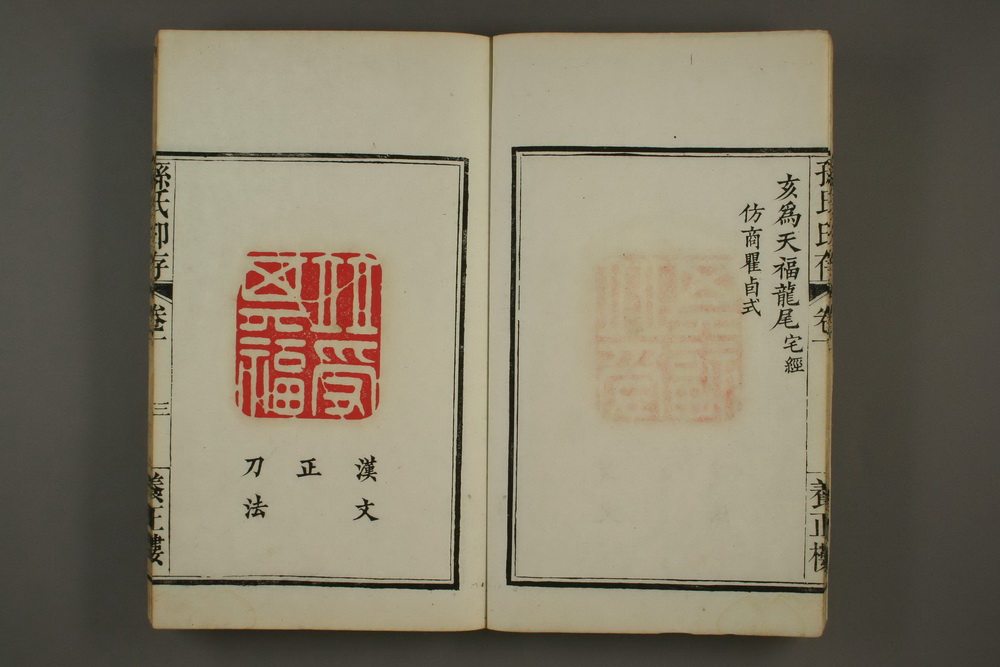 孫氏印存 卷一 養正樓
亥爲天福龍尾宅經
仿商瞿卣式
竝受
其福
漢文
正
刀法
孫氏印存 卷一 三 養正樓